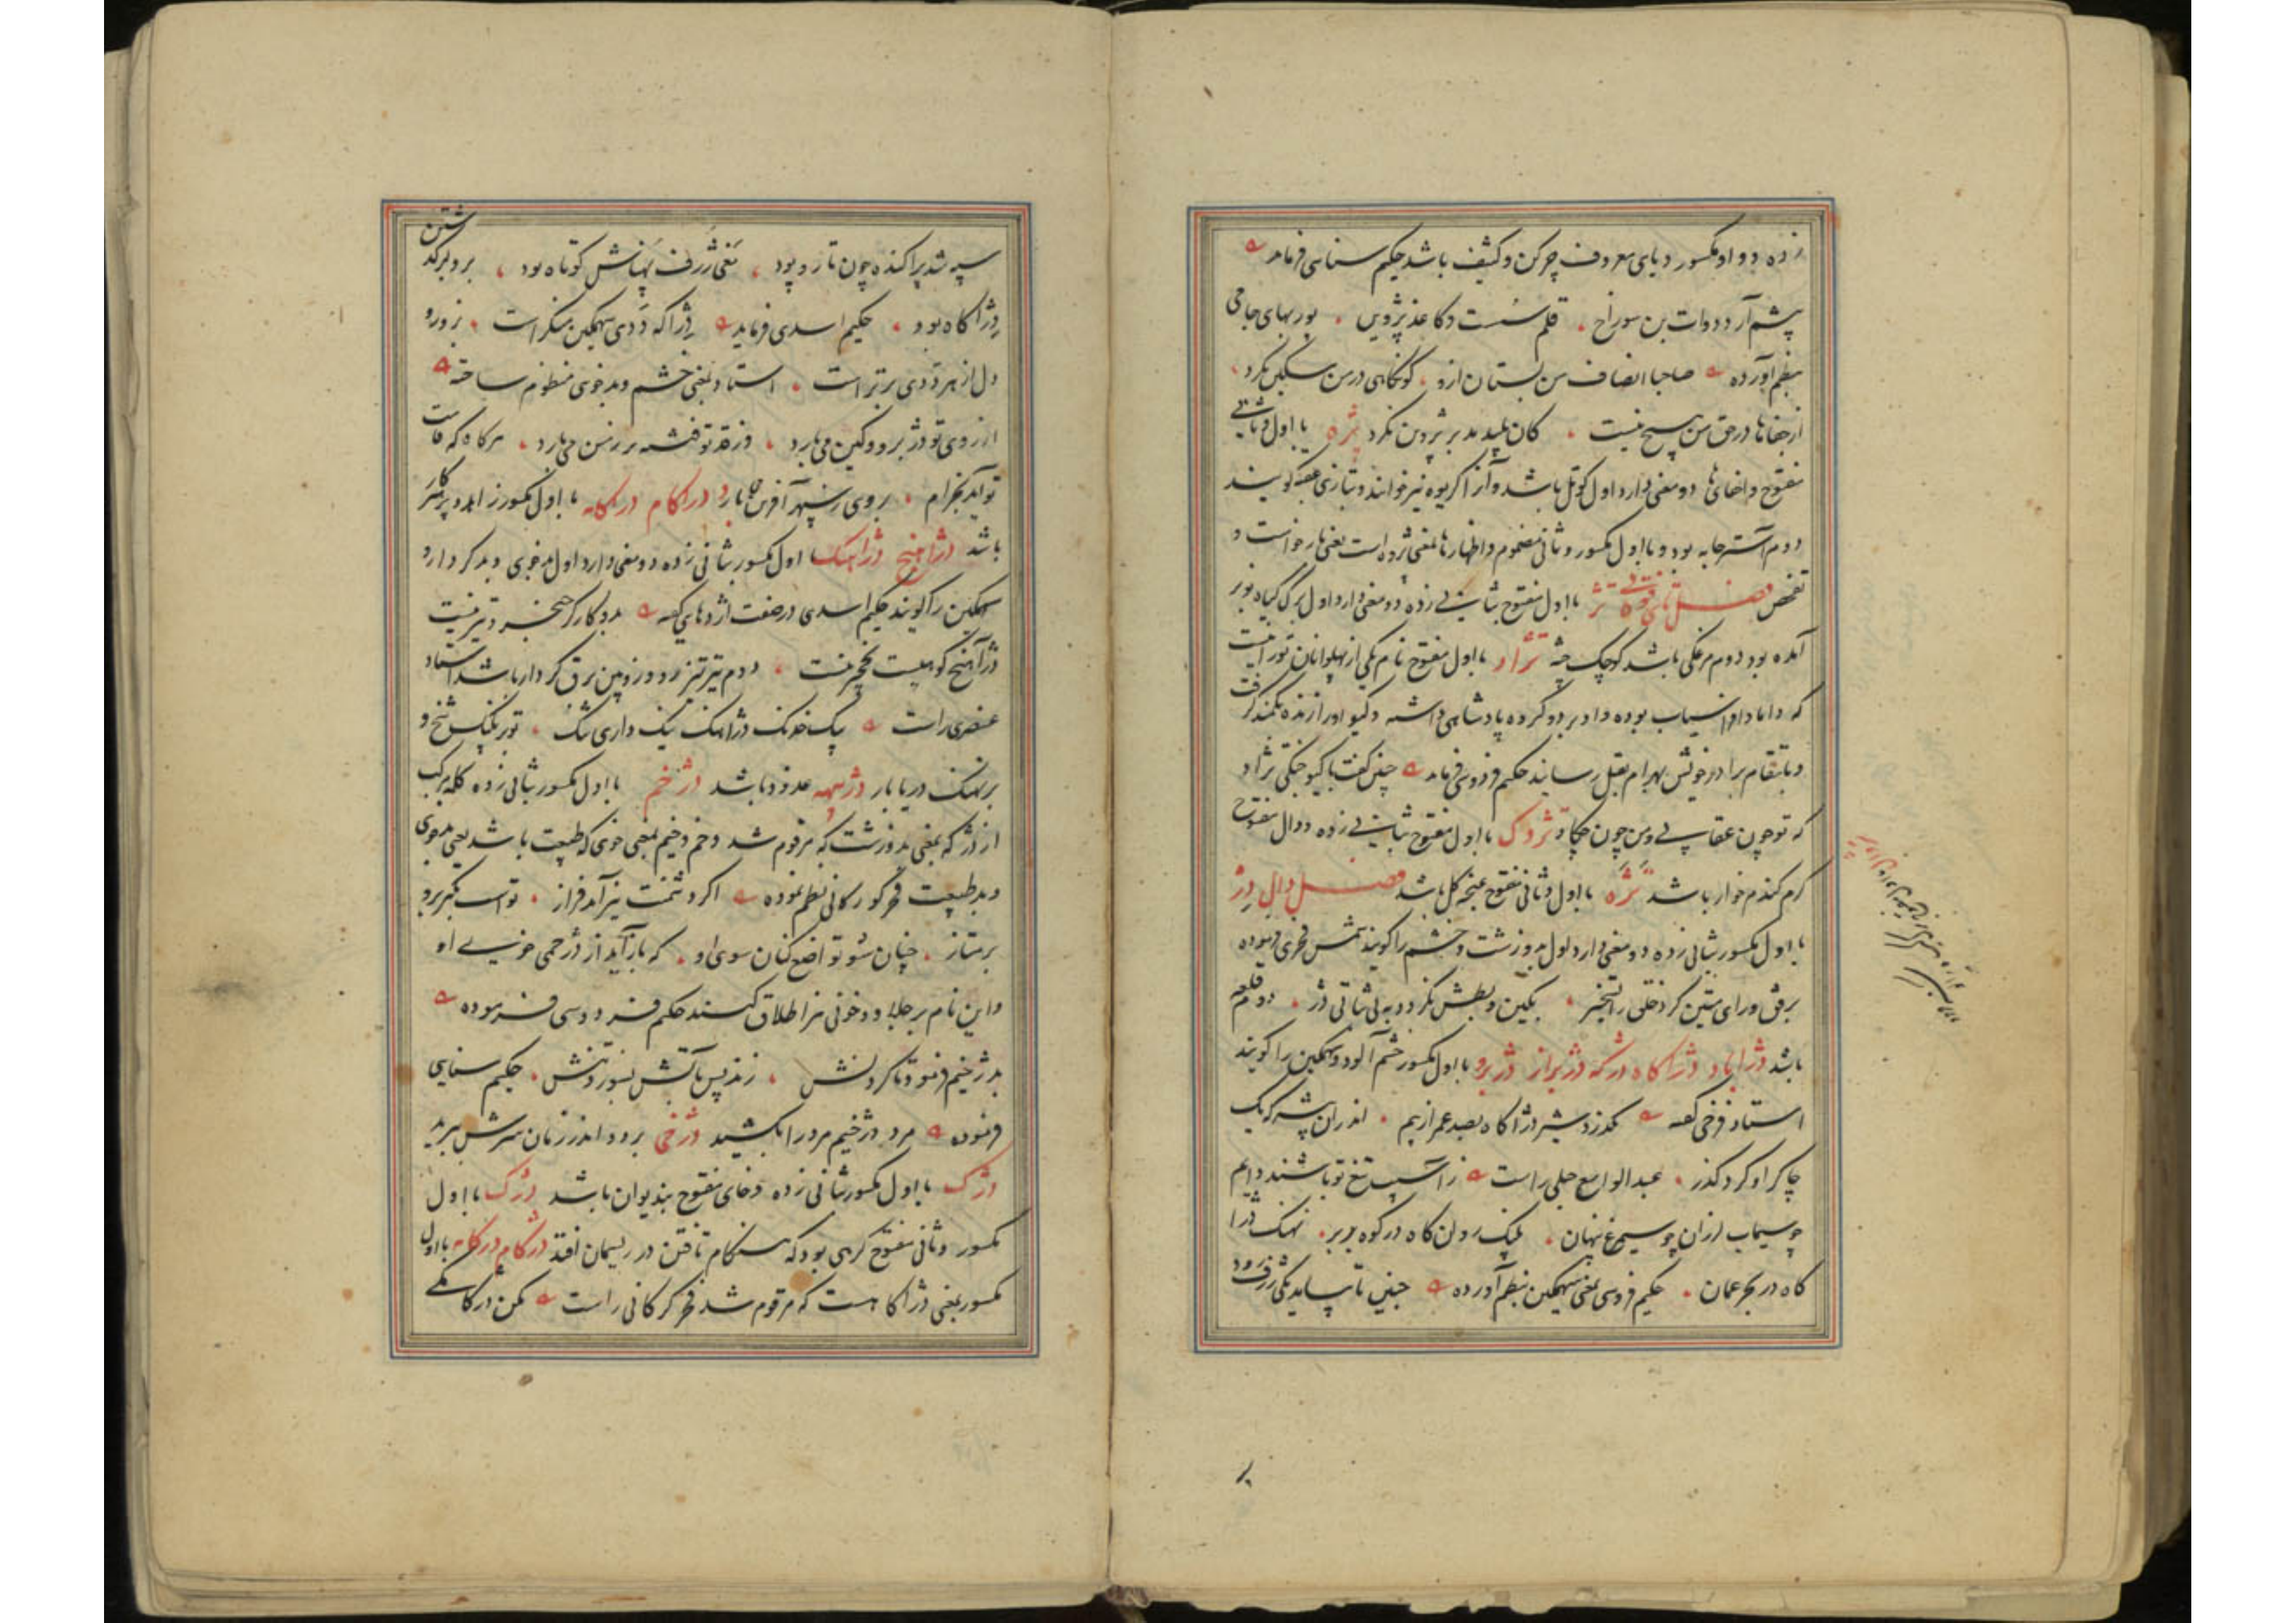 زده و واو مکسور و یای معروف چرکن و کثیف باشد حکیم سنایی فرماید
پشم آرد دوات بن سوراخ ، قلم سست و کاغذ پژوین ، پوربهای جامی
بنظم آورده صاحبا انصاف من بستان ازو ، کو نگاهی در من مسکین نکرد ،
از جفاها در حق من هیچ نیست ، کان پلید بد بر پژوین نکرد پژه با اول و ثانی
مفتوح و اخفای ها دو معنی دارد اول کوتل باشد و آنرا کریوه نیز خوانند و بتازی عقبه گویند
دوم آستر جامه بود و با اول مکسور و ثانی مضموم و اظهار ها بمعنی پژوه است یعنی بازخواست و
تفحص فصل تای فوقانی تژ با اول مفتوح بثانی زده دو معنی دارد اول برگ گیاه نو بر
آمده بود دوم مرغکی باشد کوچک جثه تژاو با اول مفتوح نام یکی از پهلوانان تورانیست
که داماد افراسیاب بوده و او برد و کروه پادشاهی داشته و گیو او را زنده بکمند گرفت
و بانتقام برادر خویش بهرام بقتل رسانید حکیم فردوسی فرماید چنین گفت با گیو جنگی تژاو
که تو چون عقابی و من چون چکاو تژدک با اول مفتوح بثانی زده و دال مفتوح
کرم گندم خوار باشد تژه با اول و ثانی مفتوح غنچه گل باشد فصل دال دژ
با اول مکسور بثانی زده دو معنی دارد اول بد و زشت و خشم را گویند شمس فخری فرموده
برفق و رای متین کرد خلق را تسخیر ، بکین و بطش نکرد و به بی ثباتی دژ ، دوم قلعه
باشد دژاباد دژاکاه دژکه دژبراز دژبرو با اول مکسور خشم آلود و سهمگین را گویند
استاد فرخی گفته نگذرد شیر دژاکاه بصد عمر از بیم ، اندران بیشه که یک
چاکر او کرد گذر ، عبدالواسع جبلی راست ز آسیب تیغ تو باشند دایم
چو سیماب لرزان چو سیمرغ پنهان ، پلنگ رون کاه در کوه بربر ، نهنگ دژا
کاه در بحر عمان ، حکیم فردوسی بمعنی سهمگین بنظم آورده چنین تا بیاید یکی ژرف رود
سپه شد پراکنده چون تار و پود ، بنی ژرف پهناش کوتاه بود ، برو بر گذشتن
دژاکاه بود ، حکیم اسدی فرماید دژاکه ددی سهمگین منکر است ، بزور و
دل از هر ددی برتر است ، استاد بمعنی خشم و بدخوی منظوم ساخته
از روی تو دژ برو و کین می بارد ، وز قد تو فتنه بر زمن می بارد ، هرگاه که قامت
تو آید بخرام ، بر روی سپهر آفرین می بارد دژاکام دژکامه با اول مکسور زاهد و پرهیزکار
باشد دژآهنج دژآهنگ با اول مکسور بثانی زده دو معنی دارد اول بدخوی و بدکردار و
سهمگین را گویند حکیم اسدی در صفت اژدهای گفته بدو کارگر خنجر و تیر نیست
دژآهنج کوهیست نخچیر نیست ، دوم تیر تیزرو و زوبین برق کردار باشد استاد
عنصری راست یک خدنگ دژآهنگ یک داری تنگ ، تو بر پلنگ شخ و
بر نهنگ دریا بار دژبهه غدود باشد دژخم با اول مکسور بثانی زده کلمه مرکب
از دژ که بمعنی بد و زشت که مرقوم شد و خم و خیم بمعنی خوی که طبیعت باشد یعنی بدخوی
و بد طبیعت فخر گورگانی نظم نموده اگر دشمنت نیز آید فراز ، تو اسب تکبر برو
بر متاز ، چنان شو تواضع کنان سوی او ، که باز آید از دژخمی خوی او
و این نام بر جلاد و خونی نیز اطلاق کنند حکیم فردوسی فرموده
بدژخیم فرمود تا گردنش ، زند پس بآتش بسوزد تنش ، حکیم سنایی
فرموده مرد دژخیم مرد را بکشید دژخی برود اندر زمان سرش ببرید
دژک با اول مکسور بثانی زده و خای مفتوح بندیوان باشد دژک با اول
مکسور و ثانی مفتوح گرهی بود که هنگام تافتن در ریسمان افتد دژکام دژکامه با اول
مکسور بمعنی دژاکاهست که مرقوم شد فخر گرگانی راست مکن دژکامگی